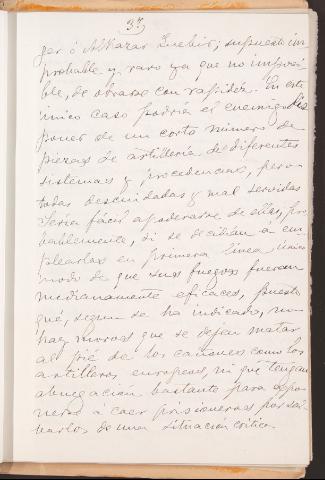 37
ger ó Alkazar Quebir; supuesto im
probable y raro ya que no imposi
ble, de obrarse con rapidéz. En este
único caso podría el enemigo dis
poner de un corto número de
piezas de artillería de diferentes
sistemas y procedencias, pero
todas descuidadas y mal servidas
Sería fácil apoderarse de ellas, pro
bablemente, si se decidían á em
plearlas en primera línea, único
modo de que sus fuegos fueran
medianamente eficaces, puesto
qué, segun se ha indicado, no
hay moros que se dejen matar
al pié de los cañones como los
artilleros europeos, ni que tengan
abnegación bastante para expo
nerse á caer prisioneros por sal
varlos de una situación crítica.